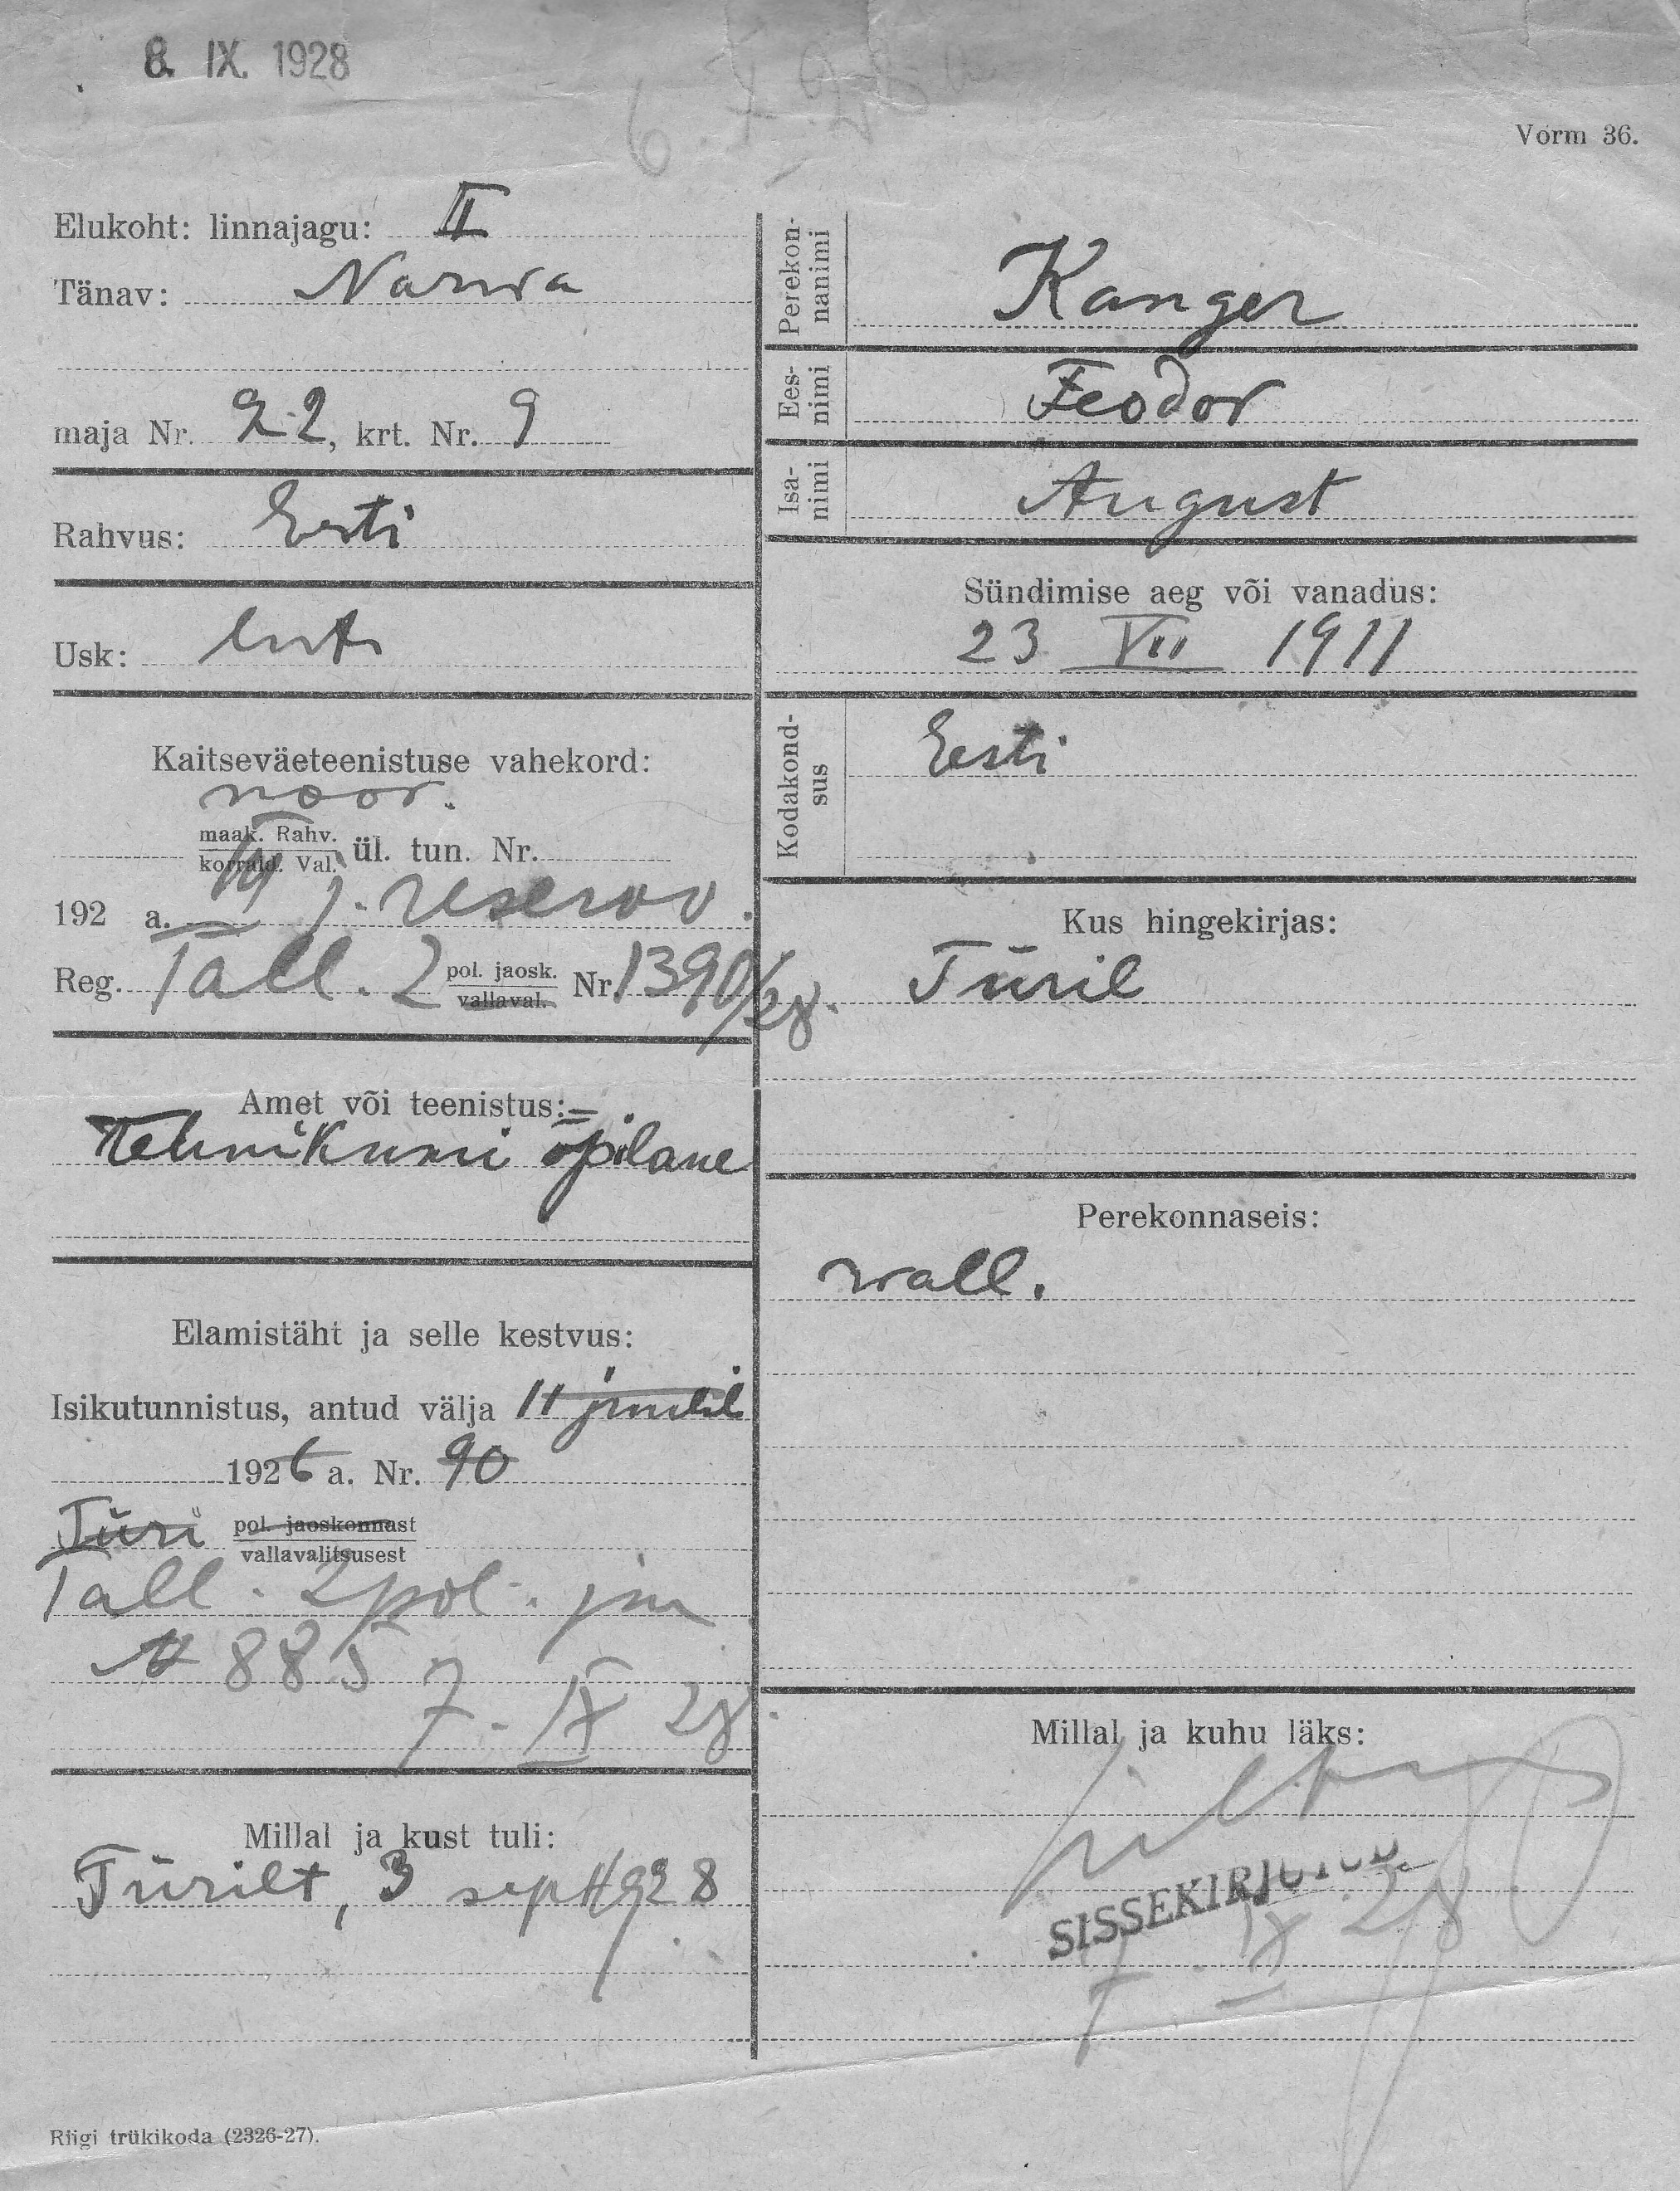 8. IX. 1928
Vorm 36.
Elukoht: linnajagu: II
Tänav: Narva
maja Nr. 22, krt. Nr. 9
Rahvus: Eesti
Usk: luth
Kaitseväeteenistuse vahekord:
noor.
maak. Rahv.
korrald. Val. ül. tun. Nr.
192 a. j. reserv.
Reg. Tall. 2 pol. jaosk. Nr. 1390/28.
vallaval.
Amet või teenistus:
Tehnikumi õpilane
Elamistäht ja selle kestvus:
Isikutunnistus, antud välja 11 juulil
1926 a. Nr. 90
Türi pol. jaoskonnast
vallavalitsusest
Tall. 2 pol. jsn
№ 885
7. IX 28.
Millal ja kust tuli:
Türilt, 3 sept 1928
Riigi trükikoda (2326-27).
Perekon-
nanimi
Kanger
Ees-
nimi
Feodor
Isa-
nimi
August
Sündimise aeg või vanadus:
23 VII 1911
Kodakond-
sus
Eesti
Kus hingekirjas:
Türil
Perekonnaseis:
wall.
Millal ja kuhu läks:
SISSEKIRJUTUD.
7. IX 28